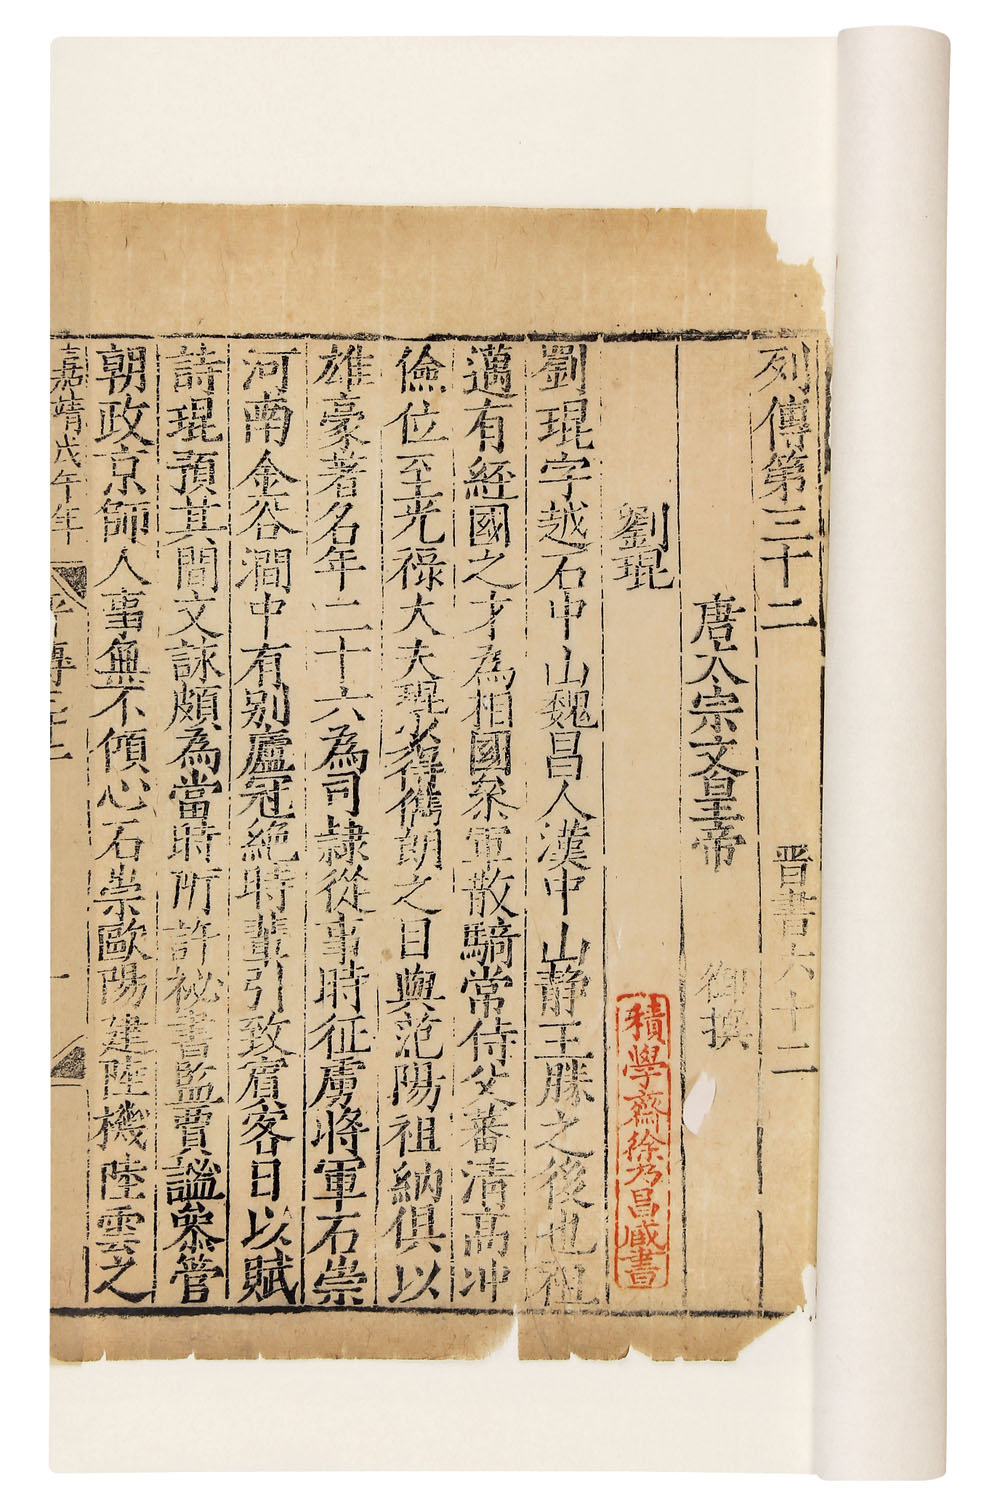 列傳第三十二 晋書六十二
唐太宗文皇帝 御撰
劉琨
積學齋徐乃昌藏書
劉琨字越石中山魏昌人漢中山靜王勝之後也祖
邁有經國之才為相國叅軍散騎常侍父蕃清高冲
儉位至光祿大夫琨少得儁朗之目與范陽祖納俱以
雄豪著名年二十六為司隷從事時征虜將軍石崇
河南金谷澗中有别廬冠絶時輩引致賓客日以賦
詩琨預其間文詠頗為當時所許祕書監賈謐叅管
朝政京師人事無不傾心石崇歐陽建陸機陸雲之
嘉靖戊午年 列傳三十二 一